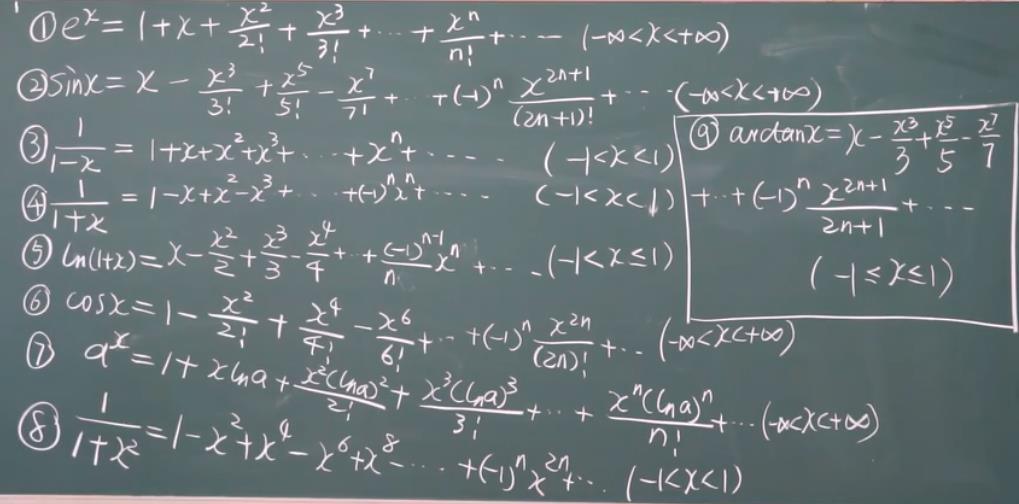 ① eˣ = 1 + x + x²/2! + x³/3! + ··· + xⁿ/n! + ···· (-∞<x<+∞)
② sinx = x - x³/3! + x⁵/5! - x⁷/7! + ·· + (-1)ⁿ x²ⁿ⁺¹/(2n+1)! + ··· (-∞<x<+∞)
③ 1/(1-x) = 1+x+x²+x³+ ···· +xⁿ+ ····· (-1<x<1)
④ 1/(1+x) = 1-x+x²-x³+ ···· +(-1)ⁿxⁿ+ ····· (-1<x<1)
⑤ ln(1+x) = x - x²/2 + x³/3 - x⁴/4 + ·· + (-1)ⁿ⁻¹/n xⁿ + ··· (-1<x≤1)
⑥ cosx = 1 - x²/2! + x⁴/4! - x⁶/6! + ·· + (-1)ⁿ x²ⁿ/(2n)! + ·· (-∞<x<+∞)
⑦ aˣ = 1 + xlna + x²(lna)²/2! + x³(lna)³/3! + ·· + xⁿ(lna)ⁿ/n! + ··· (-∞<x<+∞)
⑧ 1/(1+x²) = 1-x²+x⁴-x⁶+x⁸- ···· +(-1)ⁿx²ⁿ+ ·· (-1<x<1)
⑨ arctanx = x - x³/3 + x⁵/5 - x⁷/7
+ ·· + (-1)ⁿ x²ⁿ⁺¹/2n+1 + ····
(-1≤x≤1)